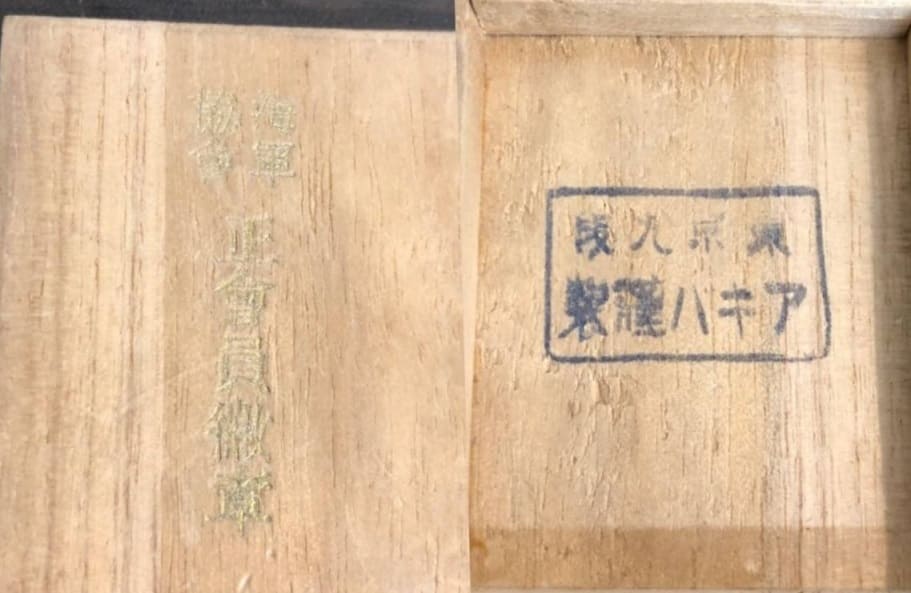 海軍
協會
正會員徽章
東京九段
アキバ謹製